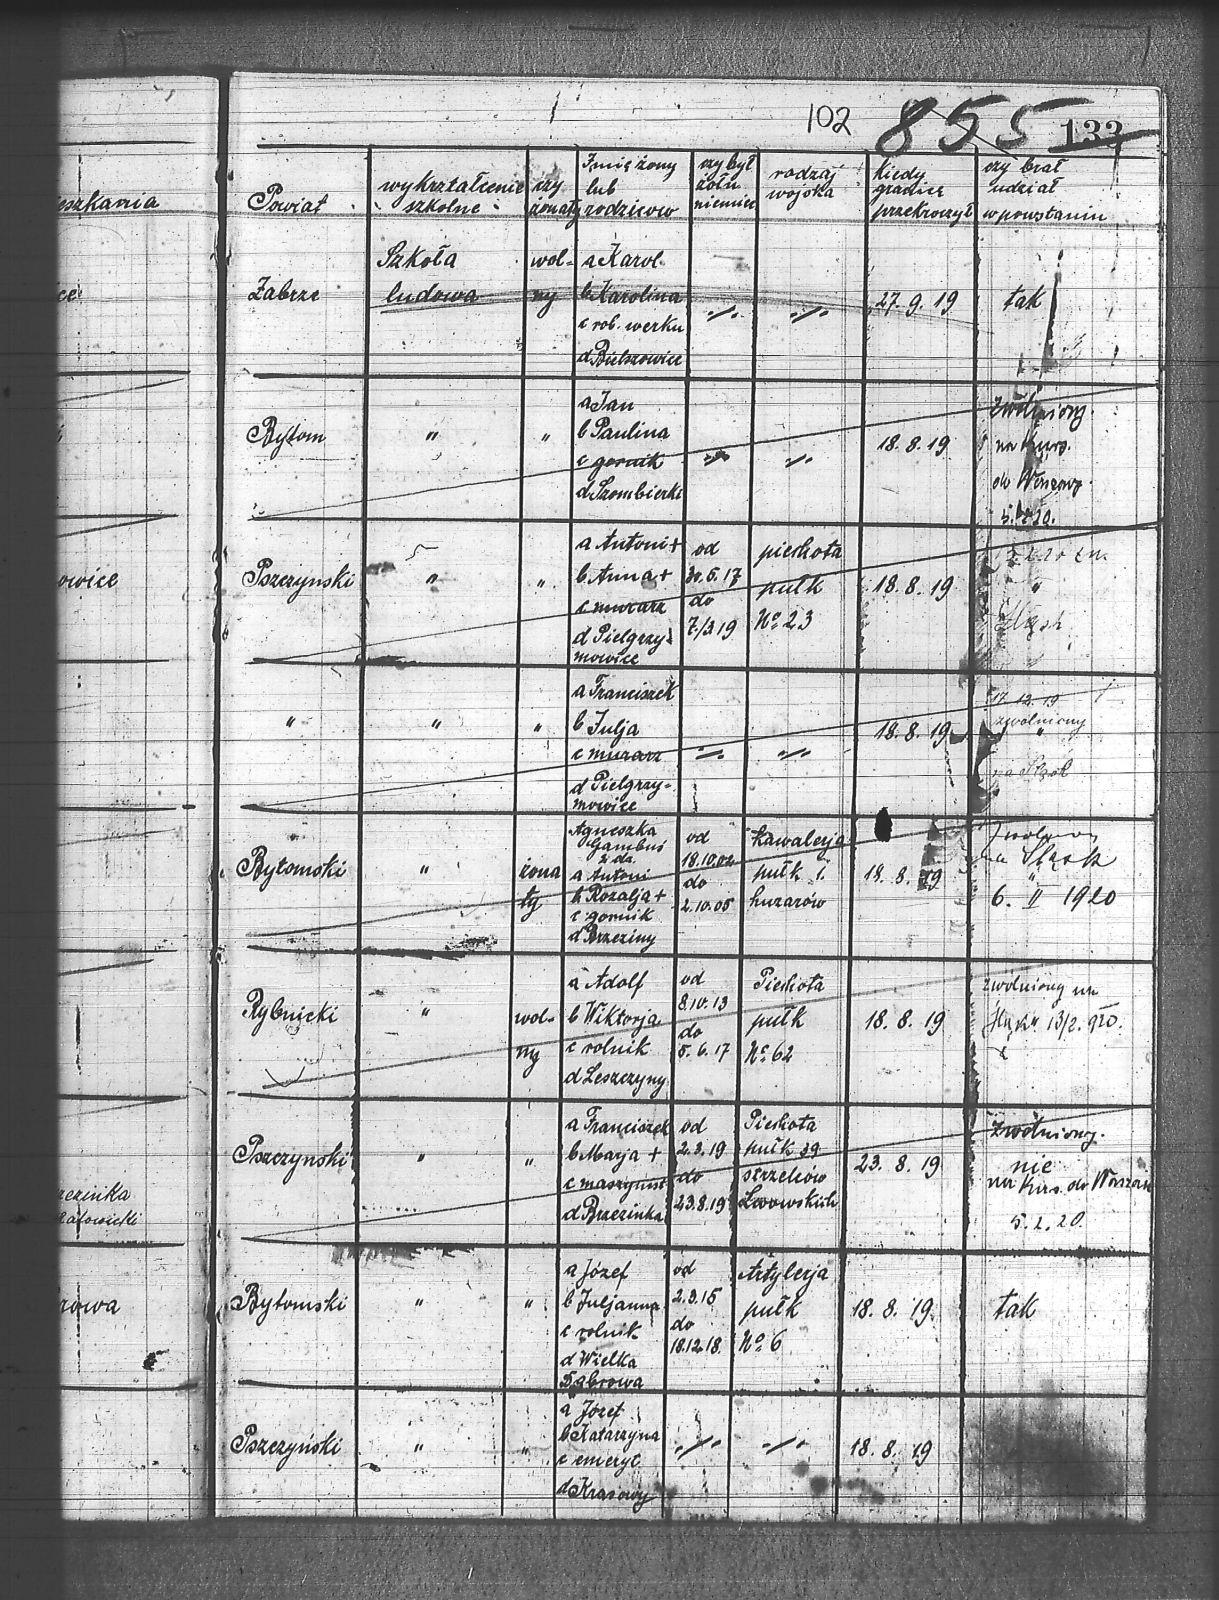 102 855 133
eszkania
Powiat
wykrztałcenie szkolne
czy żonaty
Imię żony lub rodziców
czy był żołn niemiec
rodzaj wojska
kiedy granicę przekroczył
czy brał udział w powstaniu
ce
Zabrze
Szkoła ludowa
wol-
ny
a Karol
b Karolina
c rob. werku
d Bielszowice
-//-
-//-
27.9.19
tak
Bytom
"
"
a Jan
b Paulina
c gornik
d Szombierki
-//-
-//-
18.8.19
zwolniony
na kurs
do Warszawy
owice
Pszczynski
"
"
a Antoni +
b Anna +
c murarz
d Pielgrzy-
mowice
od
30.5.17
do
7./3.19
piechota
pułk
No 23
18.8.19
"
"
"
"
a Franciszek
b Julja
c murarz
d Pielgrzy-
mowice
-//-
-//-
18.8.19
17.12.19
zwolniony
"
Bytomski
"
żona
ty
Agnieszka
z d.
a Antoni
b Rozalja +
c gornik
d Brzeziny
od
18.10.02
do
2.10.05
Kawalerja
pułk 1.
huzarów
18.8.19
na Śląsk
6. II 1920
Rybnicki
"
wol-
ny
a Adolf
b Wiktorja
c rolnik
d Leszczyny
od
8.10.13
do
5.6.17
Piechota
pułk
No 62
18.8.19
zwolniony na
Śląsk 13/2. 920.
Pszczynski
"
"
a Franciszek
b Marja +
c maszynist
d Brzezinka
od
2.3.19
do
23.8.19
Piechota
pułk 39
strzelców
Lwowskich
23.8.19
zwolniony.
nie
na kurs do Warszaw
5.2.20
rezinka
katowicki
rowa
Bytomski
"
"
a Józef
b Juljanna
c rolnik
d Wielka
Dąbrowa
od
2.3.15
do
18.12.18.
Artylerja
pułk
No 6
18.8.19.
tak
Pszczyński
"
"
a Józef
b Katarzyna
c emeryt
d Krasowy
-//-
-//-
18.8.19